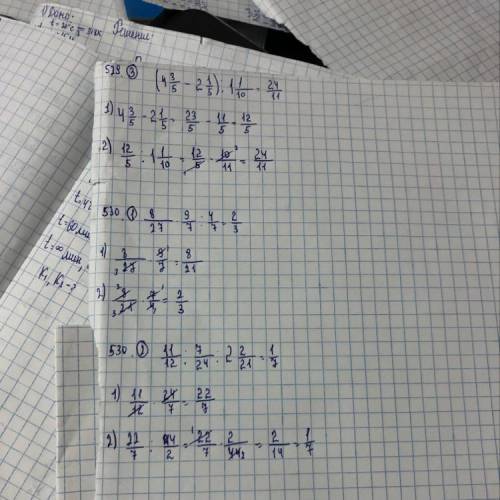 Решение:
529 ③ (4 3/5 - 2 1/5) : 1 1/10 = 24/11
1) 4 3/5 - 2 1/5 = 23/5 - 11/5 = 12/5
2) 12/5 : 1 1/10 = 12/5 · 10/11 = 24/11
530. ① 8/27 · 9/7 : 4/7 = 2/3
1) 8/27 · 9/7 = 8/21
2) 8/21 · 7/4 = 2/3
530 ② 11/12 : 7/24 : 2 2/21 = 1/7
1) 11/12 · 24/7 = 22/7
2) 22/7 : 44/2 = 22/7 · 2/44 = 2/14 = 1/7